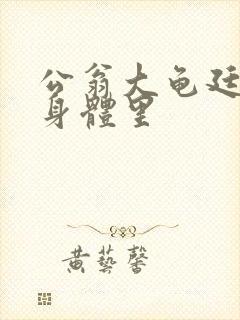 公翁大龟廷
身體里
黄藝馨